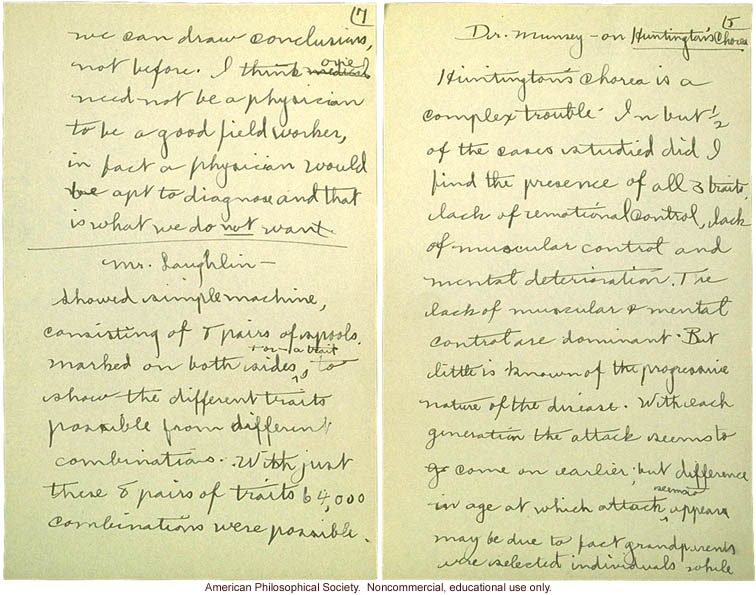 17
we can draw conclusions,
not before. I think one
need not be a physician
to be a good field worker,
in fact a physician would
be apt to diagnose and that
is what we do not want.
Mr. Laughlin -
showed simple machine,
consisting of 8 pairs of spools
marked on both sides, + or - a trait to
show the different traits
possible from different
combinations. With just
these 8 pairs of traits 64,000
combinations were possible.
5
Dr. Munsey - on Huntington's Chorea
Huntington's Chorea is a
complex trouble. In but 1/2
of the cases studied did I
find the presence of all 3 traits,
lack of emotional control, lack
of muscular control and
mental deterioration. The
lack of muscular & mental
control are dominant. But
little is known of the progressive
nature of the disease. With each
generation the attack seems to
come on earlier; but difference
in age at which attack seems appears
may be due to fact grandparents
were selected individuals while
American Philosophical Society. Noncommercial, educational use only.